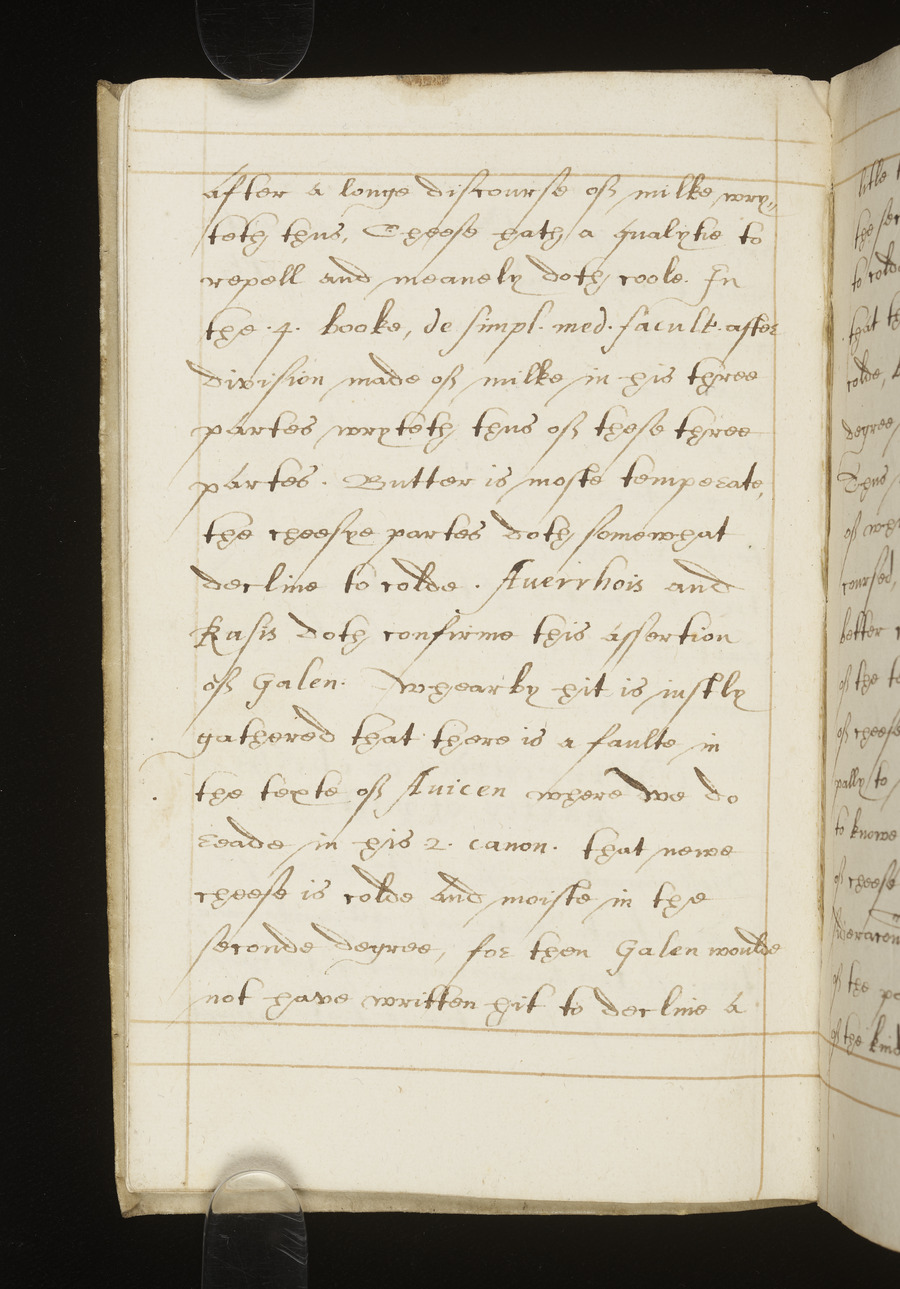 after a longe discourse off milke wry„
teth thus, Cheese hath a qualytie to
repell and meanely doth coole. In
the .4. booke, de simpl. med. facult. after
division made off milke in his three
partes wryteth thus off these three
partes. Butter is moste temperate,
the cheesye partes doth somewhat
decline to colde. Auerrhois and
Rasis doth confirme this assertion
off Galen. Whearby hit is iustly
gathered that there is a faulte in
the texte off Auicen where we do
reade in his 2. canon. that newe
cheese is colde and moiste in the
seconde degree, for then Galen woulde
not have written hit to decline a
litle
the
to colde
that
colde,
degree,
Thus
off
coursed,
better
off the
off cheese
pally to
to knowe
off cheese
off the
off the kind